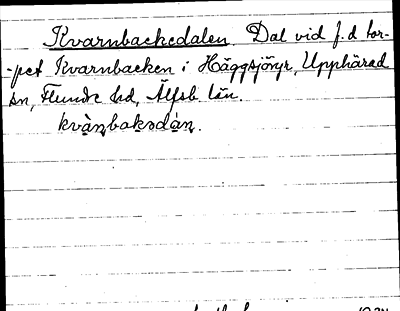 Kvarnbackedalen. Dal vid f.d tor-
-pet Kvarnbacken i Häggsjöryr, Upphärad
sn, Flundre hd, Älfsb. län.
kvàn̥baksdán.